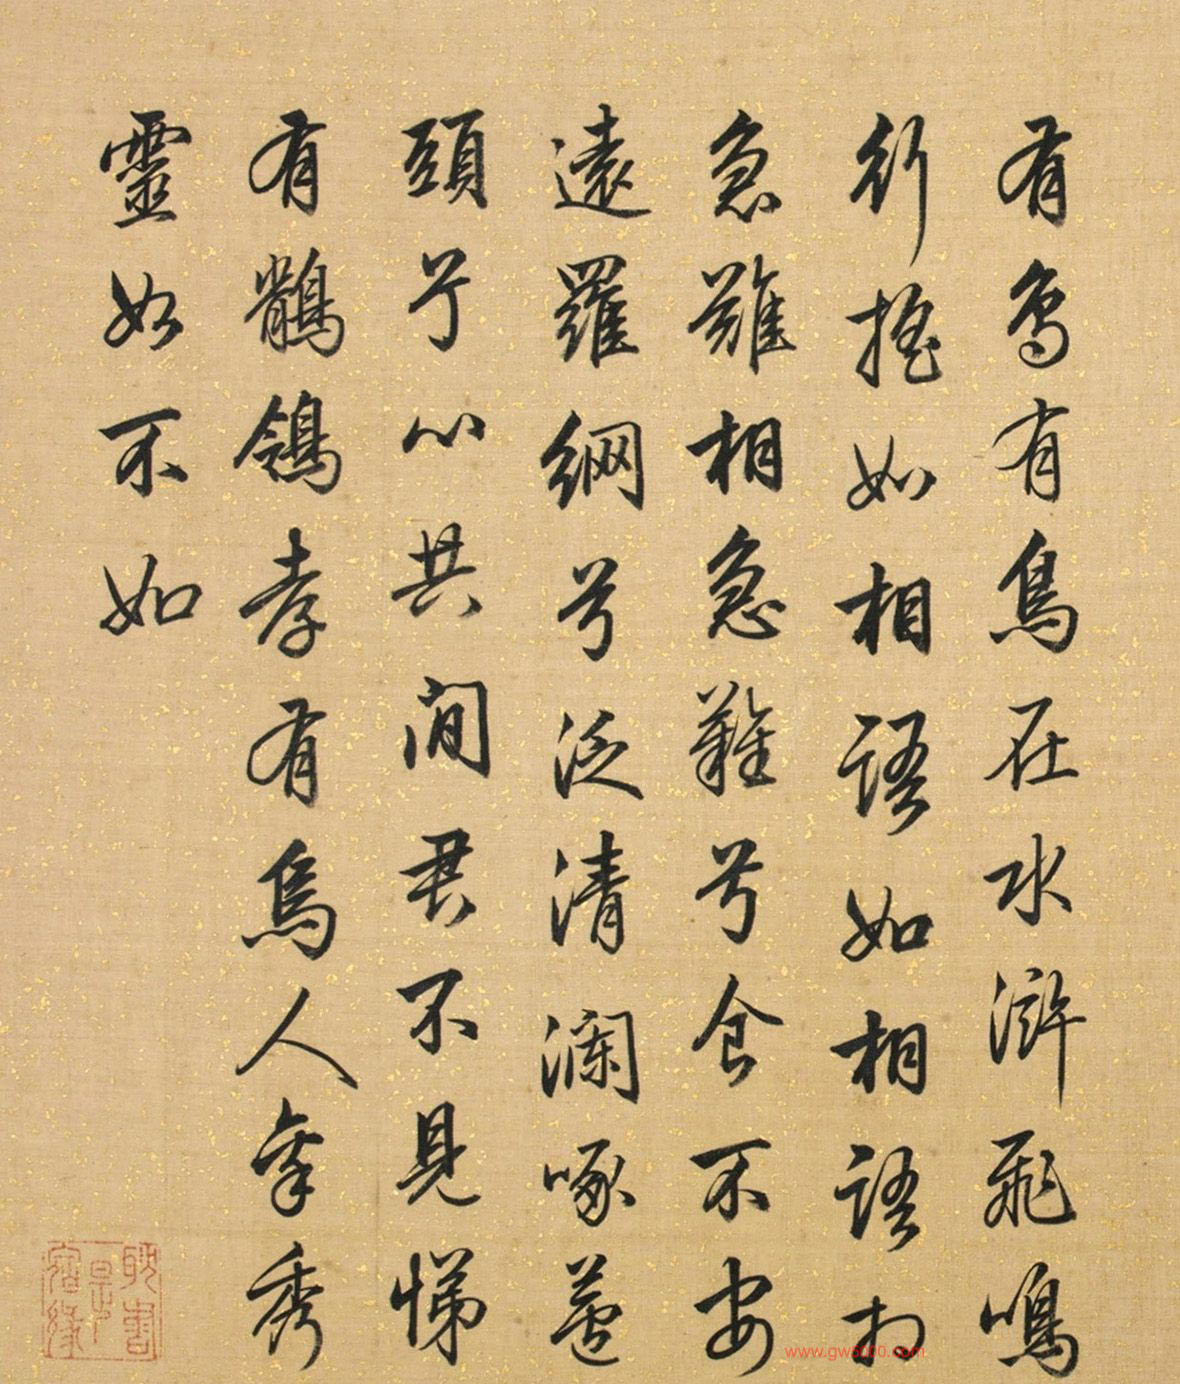 有鳥有鳥在水滸飛鳴
行搖如相語如相語相
急難相急難兮食不安
遠羅網兮泛清瀾啄
頭兮心共間君不見悌
有鶺鴒孝有烏人秀
靈如不如
耽書是宿緣
www.gw5000.com